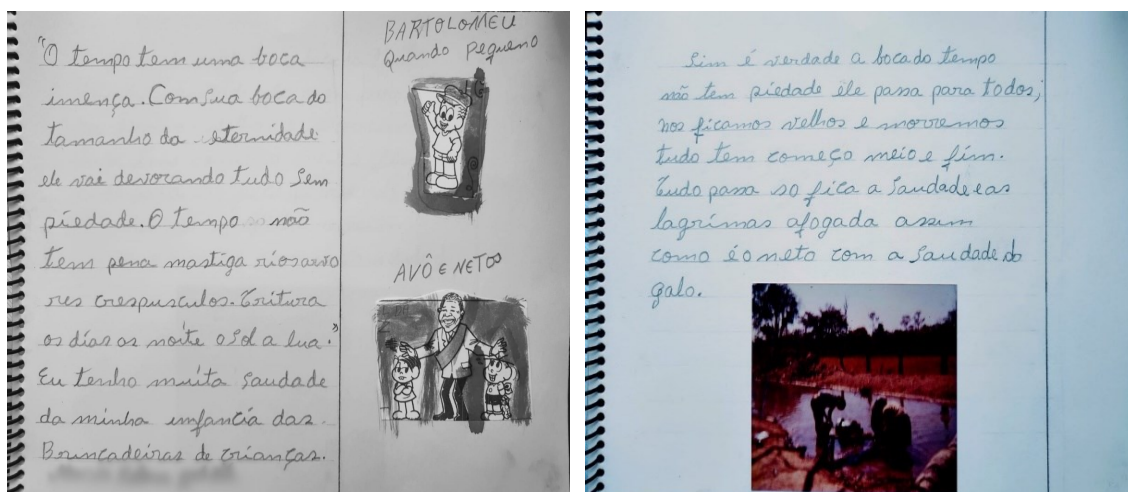 "O tempo tem uma boca
imença. Com sua boca do
tamanho da eternidade
ele vai devorando tudo sem
piedade. O tempo não
tem pena mastiga rios arvo
res crespusculos. Tritura
os dias as noite o sol a lua."
Eu tenho muita saudade
da minha infancia das
Brincadeiras de crianças.
BARTOLOMEU
Quando pequeno
AVÔ E NETOS
Sim é verdade a boca do tempo
não tem piedade ele passa para todos,
nos ficamos velhos e morremos
tudo tem começo meio e fim.
Tudo passa so fica a saudade e as
lagrimas afogada assim
como é o neto com a saudade do
galo.